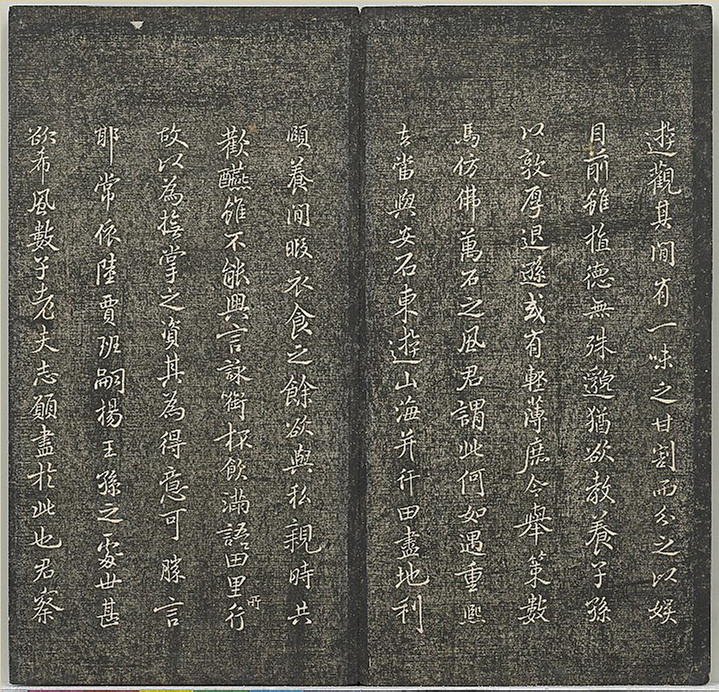 遊觀其間有一味之甘割而分之以娛
目前雖植德無殊邈猶欲教養子孫
以敦厚退遜或有輕薄庶令舉策數
馬仿佛萬石之風君謂此何如遇重熙
去當與安石東遊山海并行田盡地利
頤養閒暇衣食之餘欲與私親時共
歡讌雖不能興言詠銜杯飲滿語田里行
所
故以為撫掌之資其為得意可勝言
耶常依陸賈班嗣楊王孫之處世甚
欲希風數子老夫志願盡於此也君察